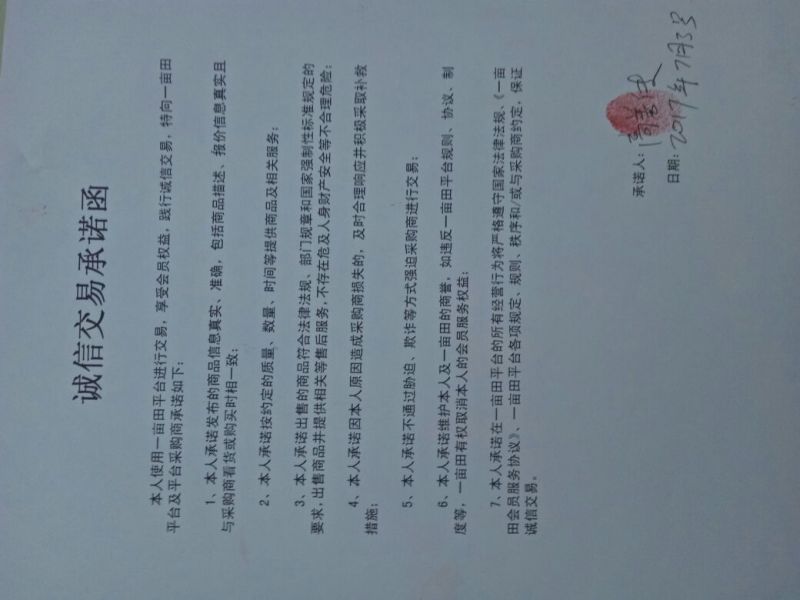 诚信交易承诺函
本人使用一亩田平台进行交易，享受会员权益，践行诚信交易，特向一亩田
平台及平台采购商承诺如下：
1、本人承诺发布的商品信息真实、准确，包括商品描述、报价信息真实且
与采购商看货或购买时相一致；
2、本人承诺按约定的质量、数量、时间等提供商品及相关服务；
3、本人承诺出售的商品符合法律法规、部门规章和国家强制性标准规定的
要求，出售商品并提供相关等售后服务，不存在危及人身财产安全等不合理危险；
4、本人承诺因本人原因造成采购商损失的，及时合理响应并积极采取补救
措施；
5、本人承诺不通过胁迫、欺诈等方式强迫采购商进行交易；
6、本人承诺维护本人及一亩田的商誉，如违反一亩田平台规则、协议、制
度等，一亩田有权取消本人的会员服务权益；
7、本人承诺在一亩田平台的所有经营行为将严格遵守国家法律法规、《一亩
田会员服务协议》、一亩田平台各项规定、规则、秩序和/或与采购商约定，保证
诚信交易。
承诺人：
日期：2017年7月3号